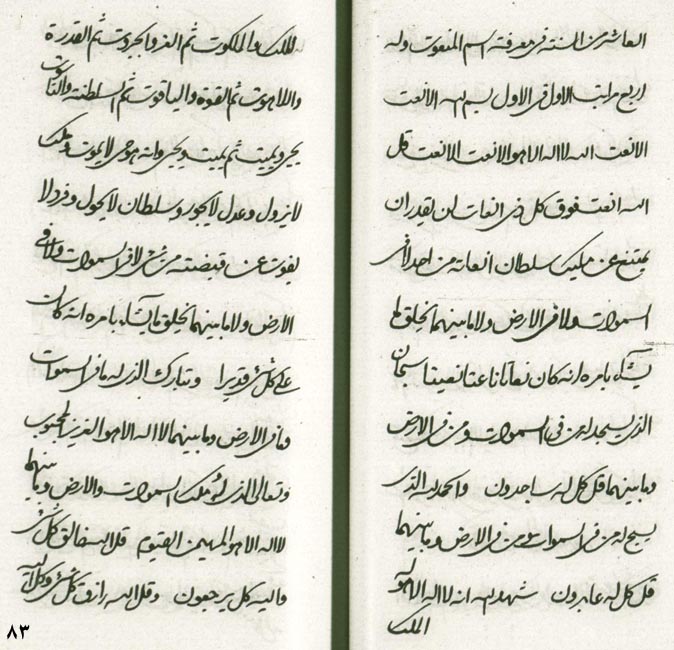 العاشر من السنة فى معرفة اسم المنعوت وله
اربع مراتب الاول فى الاول بسم الله الانعت
الانعت الله لا اله الا هو الانعت الانعت قل
الله انعت فوق كل ذى انعات لن يقدر ان
يمتنع عن مليك سلطان انعاته من احد لا فى
السموات ولا فى الارض ولا ما بينهما يخلق ما
يشاء بامره انه كان نعاتا ناعتا نعيتا سبحان
الذى يسجد له من فى السموات ومن فى الارض
وما بينهما قل كل له ساجدون والحمد لله الذى
يسبح له من فى السموات ومن فى الارض وما بينهما
قل كل له عابدون شهد الله انه لا اله الا هو له
الملك
له الملك والملكوت ثم العز والجبروت ثم القدرة
واللاهوت ثم القوة والياقوت ثم السلطنة والناسوت
يحيى ويميت ثم يميت ويحيى وانه هو حى لا يموت وملك
لا يزول وعدل لا يجور وسلطان لا يحول وفرد لا
يفوت عن قبضته من شئ لا فى السموات ولا فى
الارض ولا ما بينهما يخلق ما يشاء بامره انه كان
على كل شئ قديرا وتبارك الذى له ما فى السموات
وما فى الارض وما بينهما لا اله الا هو العزيز المحبوب
وتعالى الذى له ملك السموات والارض وما بينهما
لا اله الا هو المهيمن القيوم قل الله خالق كل شئ
واليه كل يرجعون وقل الله رازق كل شئ وكل
٨٣